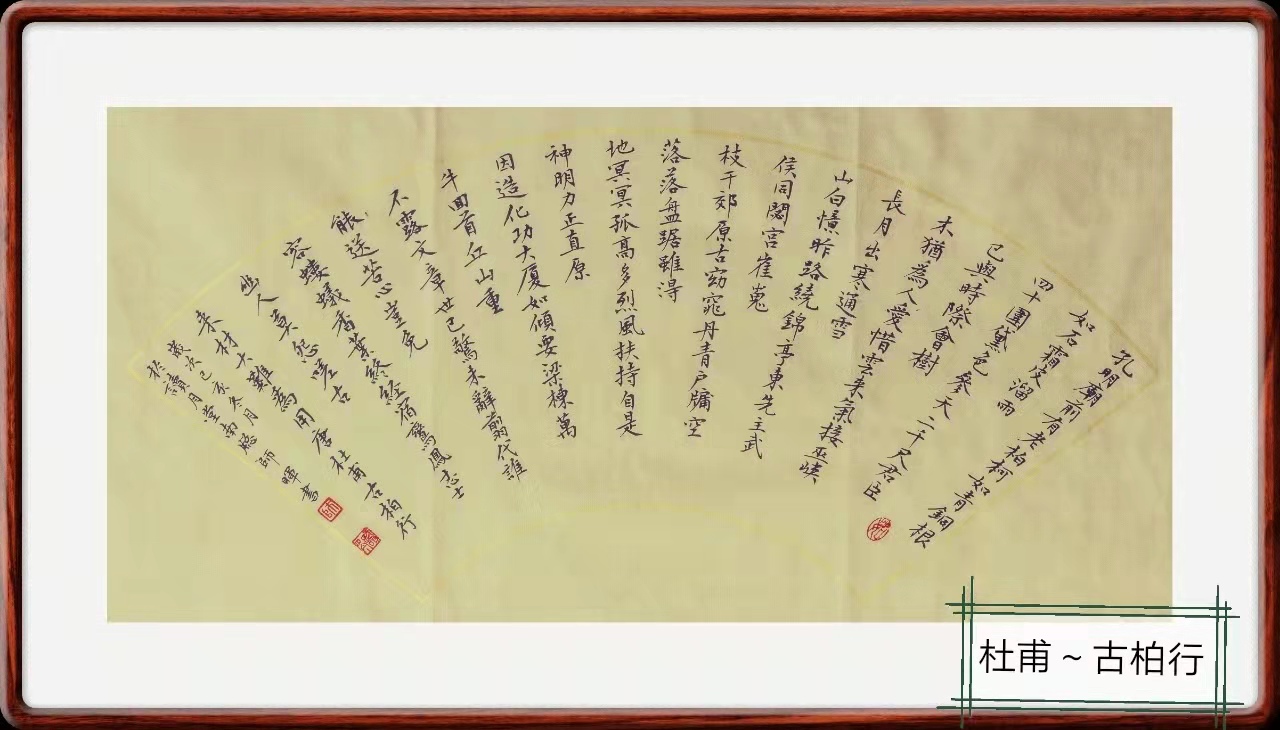 孔明廟前有老柏柯如青銅根
如石霜皮溜雨
四十圍黛色參天二千尺君臣
已與時際會樹
木猶為人愛惜雲來氣接巫峽
長月出寒通雪
山白憶昨路繞錦亭東先主武
侯同閟宮崔嵬
枝干郊原古窈窕丹青戶牖空
落落盤踞雖得
地冥冥孤高多烈風扶持自是
神明力正直原
因造化功大廈如傾要梁棟萬
牛囬首丘山重
不露文章世已驚未辭翦伐誰
能送苦心豈免
容螻蟻香葉終經宿鸞鳳志士
幽人莫怨嗟古
来材大難為用唐杜甫古柏行
歲次己亥冬月
於讀月堂南牕師暉書
杜甫~古柏行